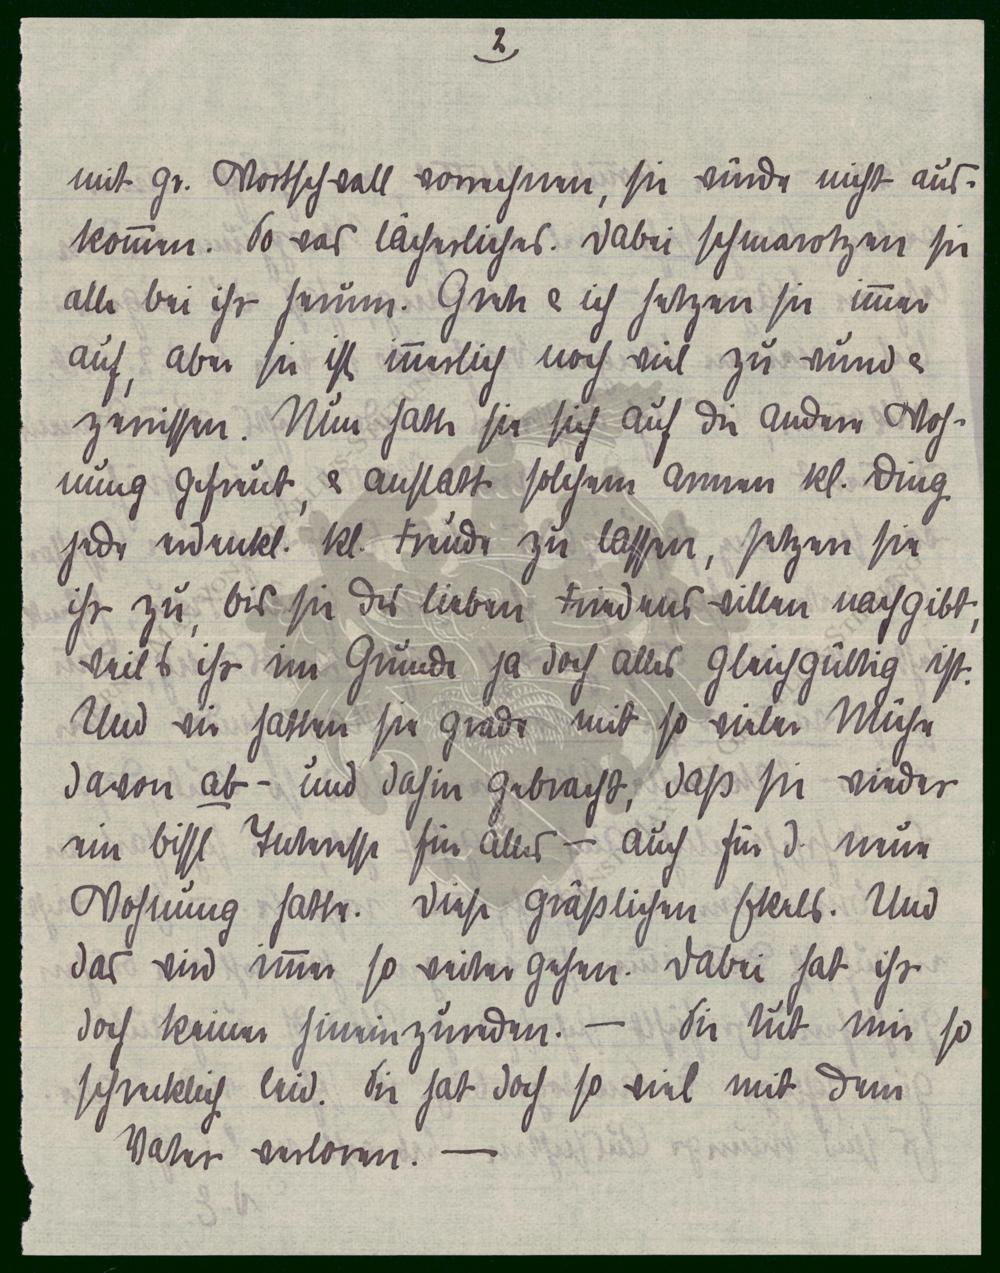 2
mit gr. Wortschwall vorrechnen, sie würde nicht aus-
kom̄en. So was lächerliches. Dabei schmarotzen sie
alle bei ihr herum. Grete & ich hetzen sie im̄er
auf, aber sie ist in̄erlich noch viel zu wund &
zerrissen. Nun hatte sie sich auf die andere Woh-
nung gefreut, & anstatt solchem armen kl. Ding
jede erdenkl. kl. Freude zu lassen, setzen sie
ihr zu, bis sie des lieben Friedens willen nachgibt,
weil's ihr im Grunde ja doch alles gleichgültig ist.
Und wir hatten sie grade mit so vieler Mühe
davon ab - und dahin gebracht, daß sie wieder
ein bissl Interesse für alles — auch für d. neue
Wohnung hatte. Diese gräßlichen Ekels. Und
das wird im̄er so weiter gehen. Dabei hat ihr
doch keiner hineinzureden. — Sie tut mir so
schrecklich leid. Sie hat doch so viel mit dem
Vater verloren. —